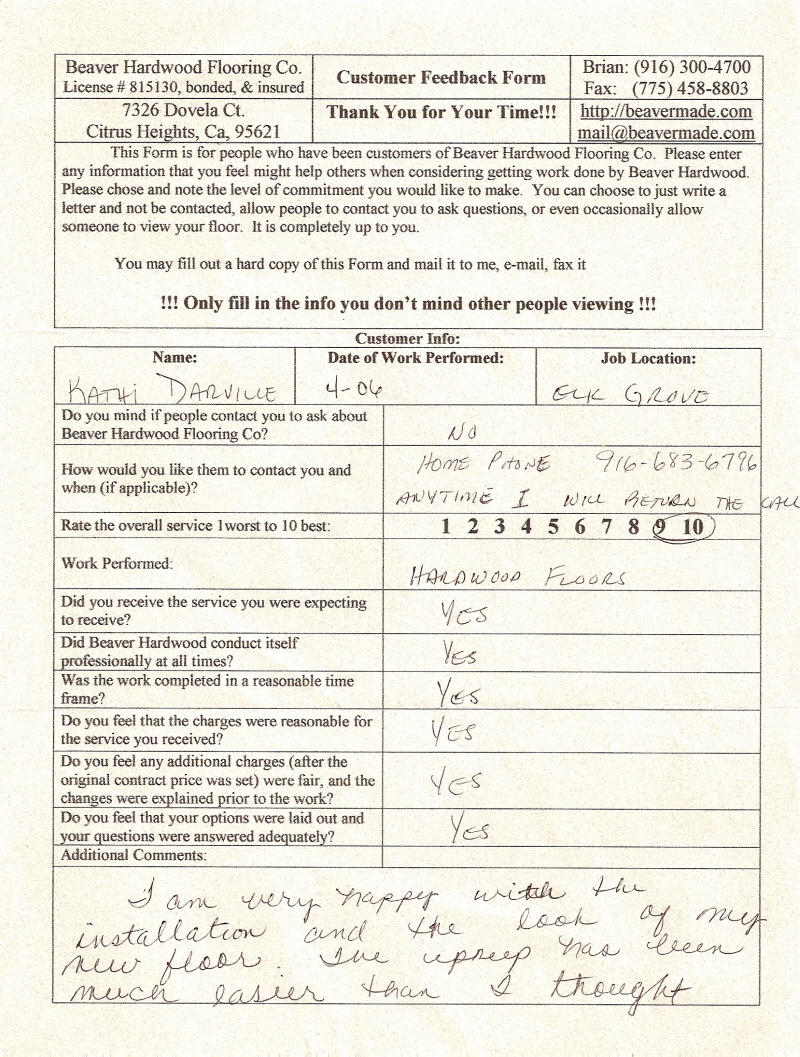 Beaver Hardwood Flooring Co.
License # 815130, bonded, & insured
Customer Feedback Form
Brian: (916) 300-4700
Fax: (775) 458-8803
7326 Dovela Ct.
Citrus Heights, Ca, 95621
Thank You for Your Time!!!
http://beavermade.com
mail@beavermade.com
This Form is for people who have been customers of Beaver Hardwood Flooring Co. Please enter
any information that you feel might help others when considering getting work done by Beaver Hardwood.
Please chose and note the level of commitment you would like to make. You can choose to just write a
letter and not be contacted, allow people to contact you to ask questions, or even occasionally allow
someone to view your floor. It is completely up to you.
You may fill out a hard copy of this Form and mail it to me, e-mail, fax it
!!! Only fill in the info you don't mind other people viewing !!!
Customer Info:
Name:
KATHI DARVILLE
Date of Work Performed:
4-06
Job Location:
ELK GROVE
Do you mind if people contact you to ask about
Beaver Hardwood Flooring Co?
NO
How would you like them to contact you and
when (if applicable)?
HOME PHONE 916-683-6796
ANYTIME I WILL RETURN THE CALL
Rate the overall service 1worst to 10 best:
1 2 3 4 5 6 7 8 9 10
Work Performed:
HARDWOOD FLOORS
Did you receive the service you were expecting
to receive?
YES
Did Beaver Hardwood conduct itself
professionally at all times?
YES
Was the work completed in a reasonable time
frame?
YES
Do you feel that the charges were reasonable for
the service you received?
YES
Do you feel any additional charges (after the
original contract price was set) were fair, and the
changes were explained prior to the work?
YES
Do you feel that your options were laid out and
your questions were answered adequately?
YES
Additional Comments:
I am very happy with the
installation and the look of my
new floor. The upkeep has been
much easier than I thought